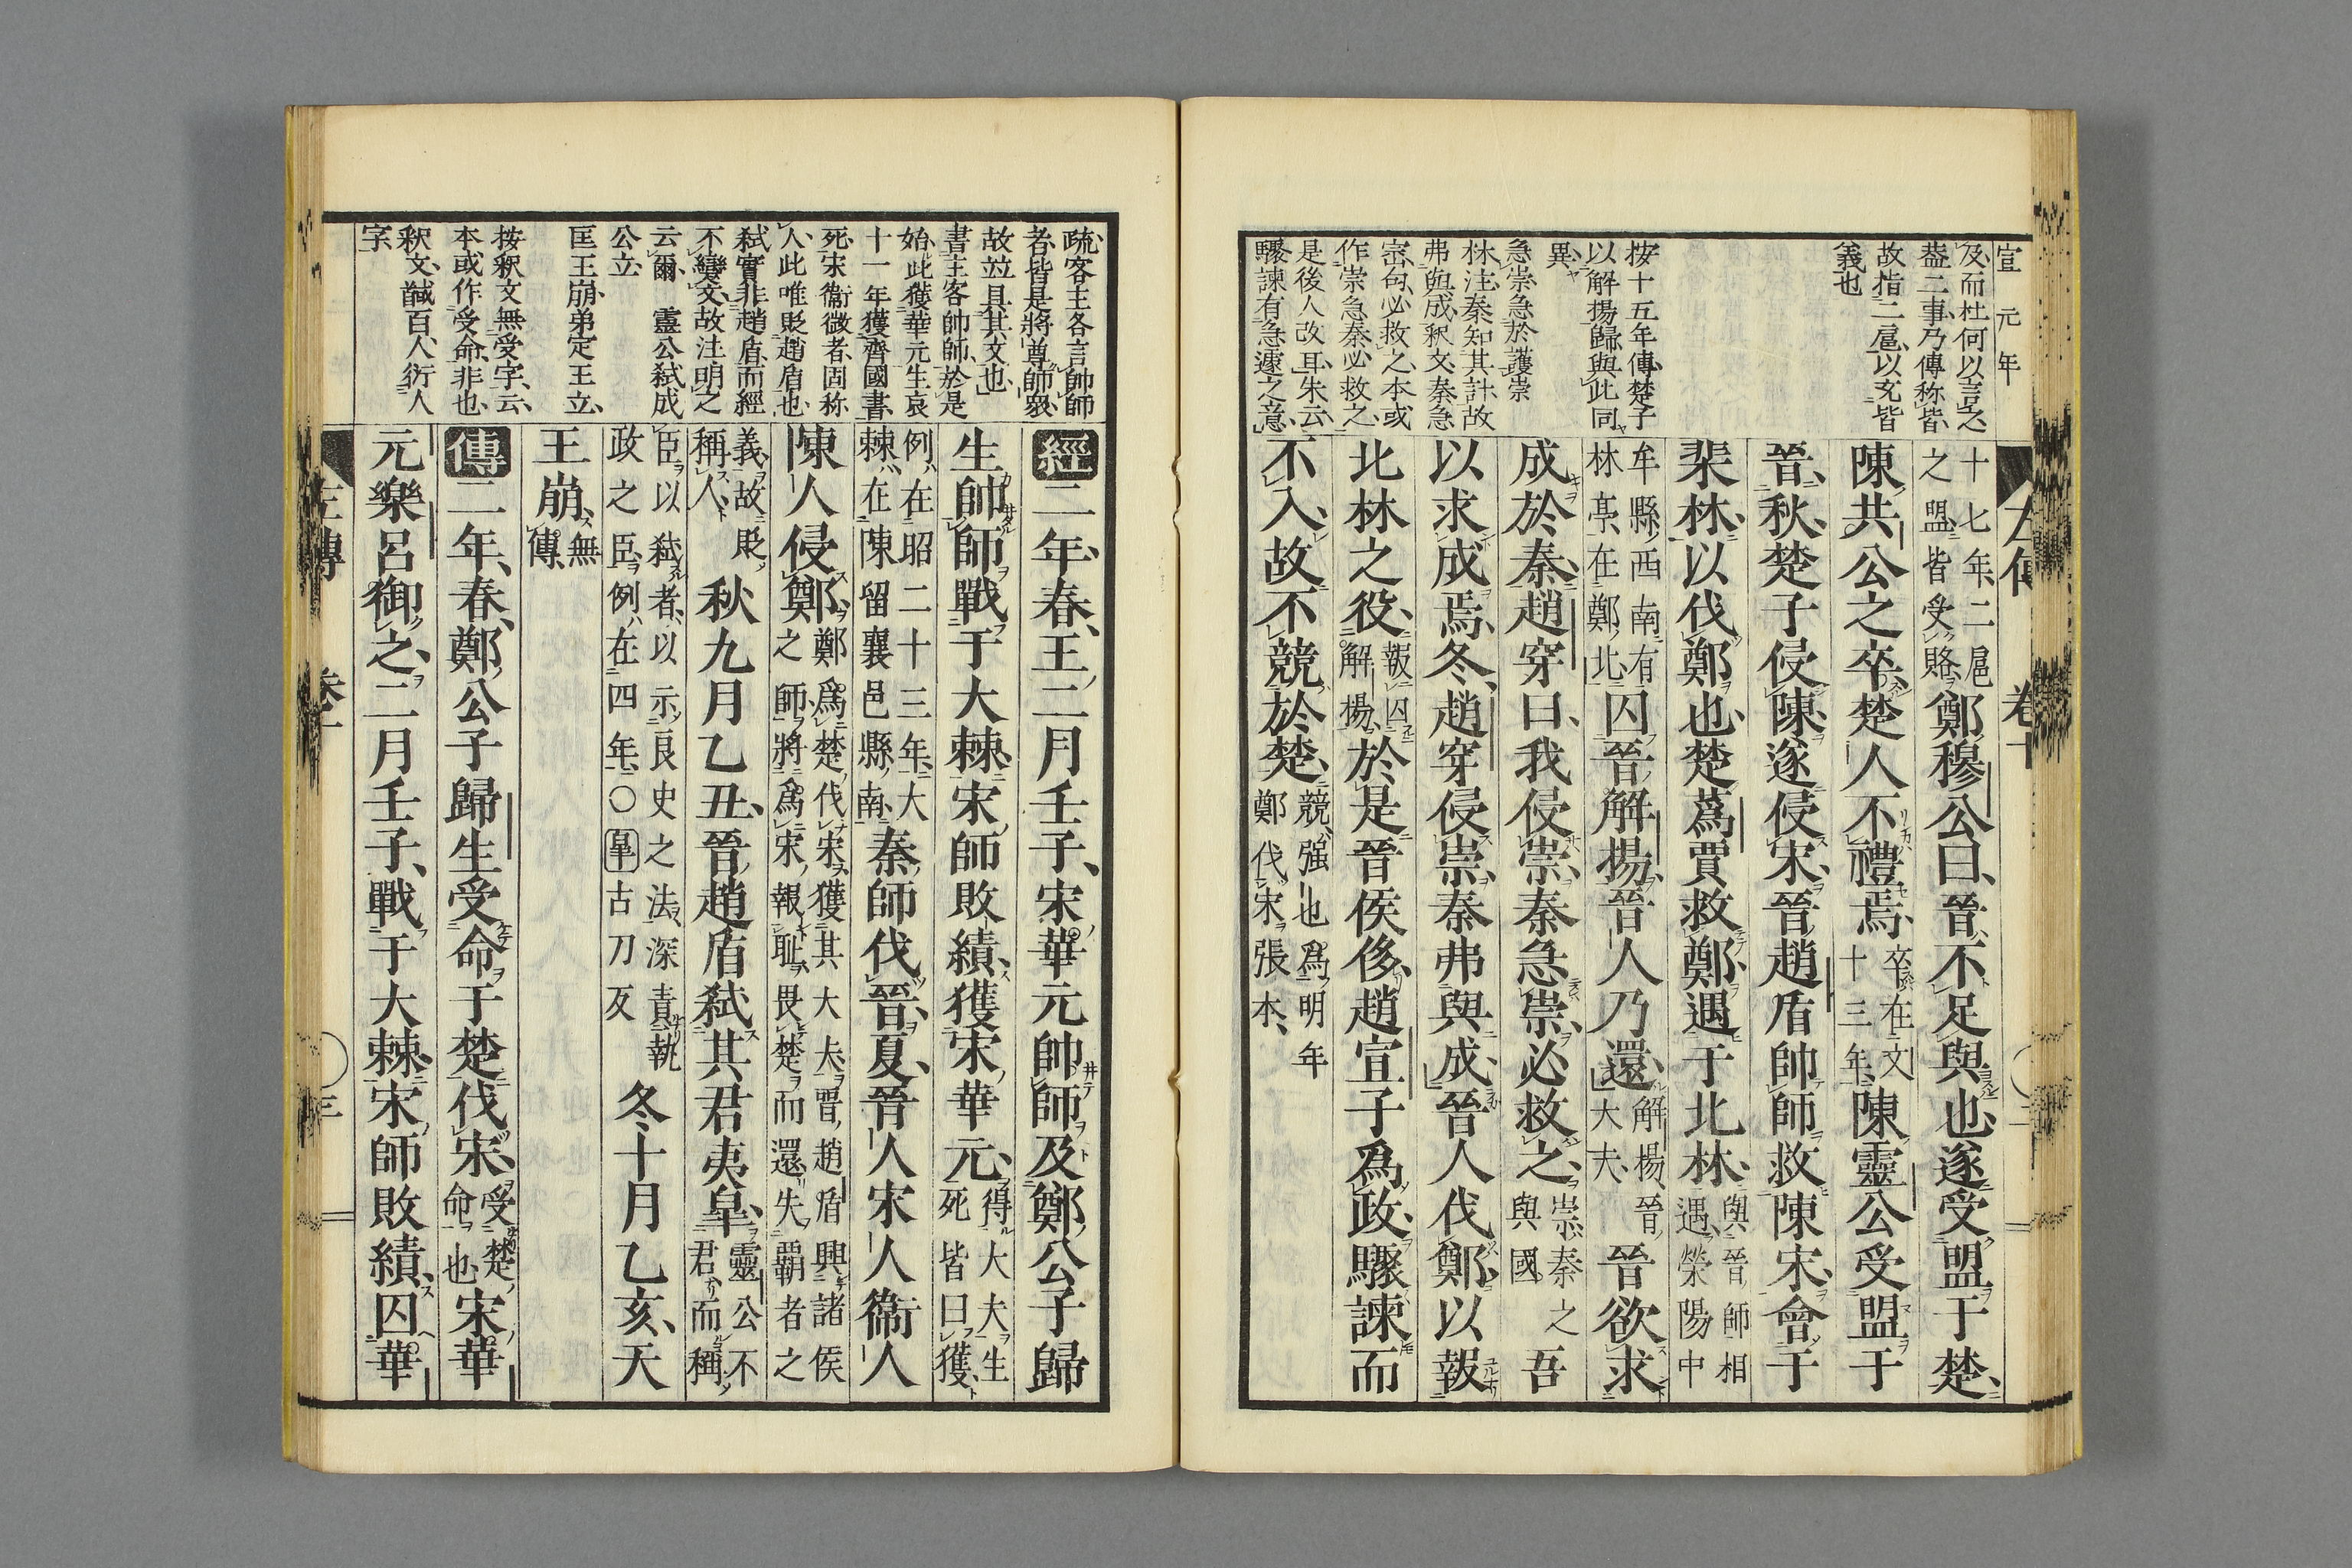 宣元年
及而杜何以言之
葢二事乃傳称皆
故指二扈以充皆
義也
按十五年傳楚子
以解揚歸與此同
異
急崇急於護崇
林注秦知其計故
弗與成釈文秦急
崇句必救之本或
作崇急秦必救之
是後人改耳朱云
驟諫有急遽之意
十七年二扈
之盟皆受賂鄭穆公曰晉不足與也遂受盟于楚
陳共公之卒楚人不禮焉卒在文
十三年陳靈公受盟于
晉秋楚子侵陳遂侵宋晉趙盾帥師救陳宋會于
棐林以伐鄭也楚蔿賈救鄭遇于北林與晉師相
遇滎陽中
牟縣西南有
林亭在鄭北囚晉解揚晉人乃還解揚晉
大夫晉欲求
成於秦趙穿曰我侵崇秦急崇必救之崇秦之
與國吾
以求成焉冬趙穿侵崇秦弗與成晉人伐鄭以報
北林之役報囚
解揚於是晉侯侈趙宣子爲政驟諫而
不入故不競於楚競强也爲明年
鄭伐宋張本
左傳 卷十
疏客主各言帥師
者皆是將尊師衆
故竝具其文也
書主客帥師於是
始此獲華元生哀
十一年獲齊國書
死宋衞微者固称
人此唯貶趙盾也
弑實非趙盾而經
不變文故注明之
云爾 靈公弑成
公立
匡王崩弟定王立
按釈文無受字云
本或作受命非也
釈文馘百人衍人
字
經二年春王二月壬子宋華元帥師及鄭公子歸
生帥師戰于大棘宋師敗績獲宋華元得大夫生
死皆曰獲
例在昭二十三年大
棘在陳留襄邑縣南秦師伐晉夏晉人宋人衞人
陳人侵鄭鄭爲楚伐宋獲其大夫晋趙盾興諸侯
之師將爲宋報恥畏楚而還失霸者之
義故貶
稱人秋九月乙丑晉趙盾弑其君夷皐靈公不
君而稱
臣以弑者以示良史之法深責執
政之臣例在四年〇皐古刀反冬十月乙亥天
王崩無
傳
傳二年春鄭公子歸生受命于楚伐宋受楚
命也宋華
元樂呂御之二月壬子戰于大棘宋師敗績囚華
左傳